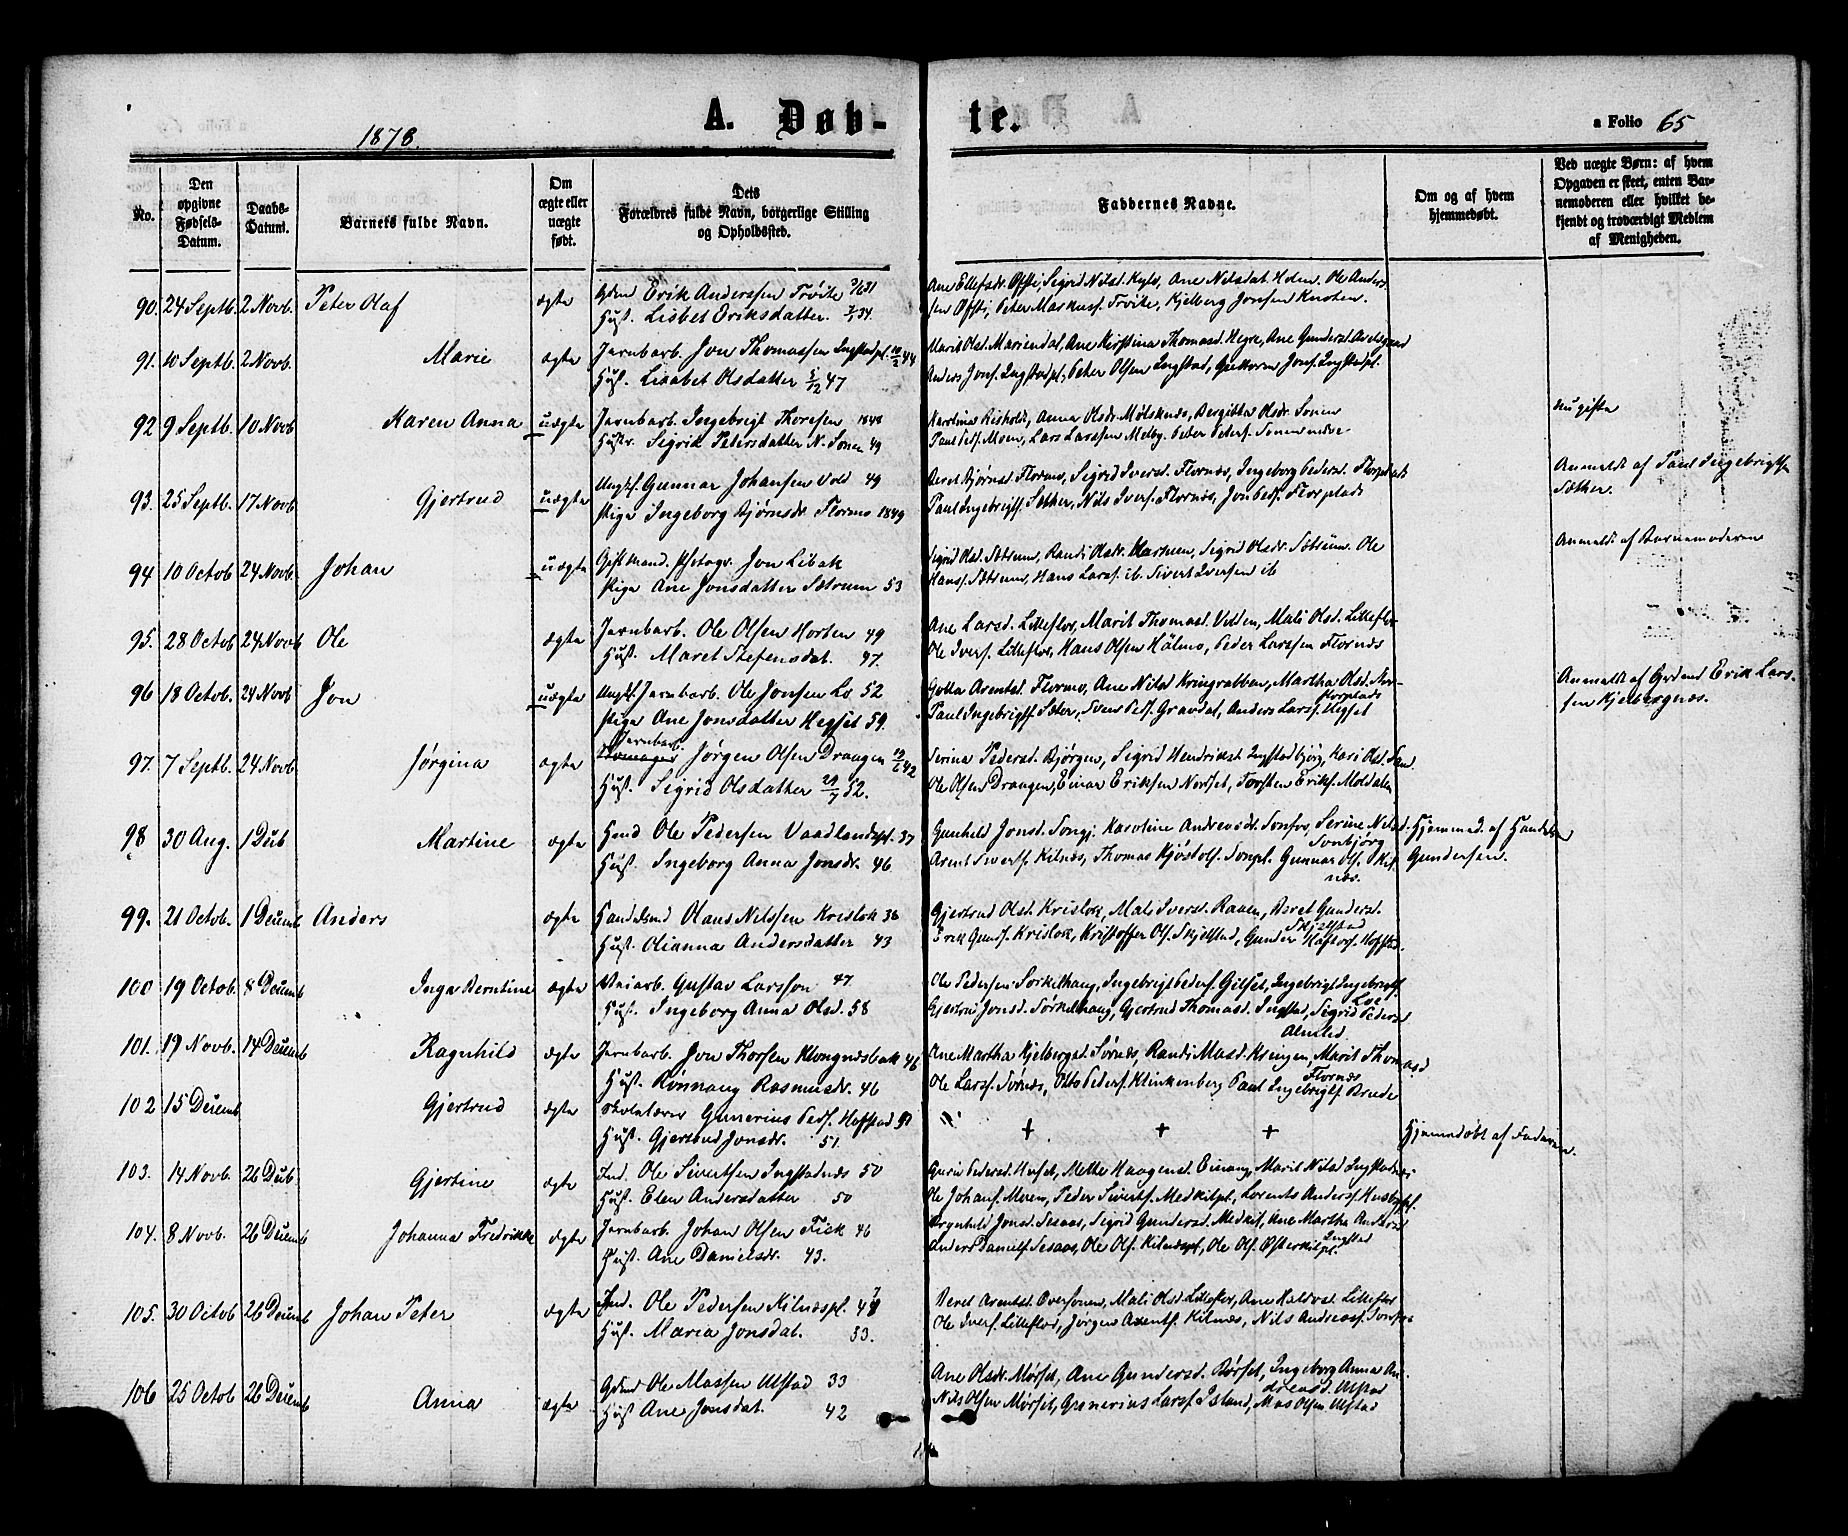 A. Døb-
te.
a Folio 65
1878.
No.
Den opgivne Fødsels-Datum.
Daabs-Datum.
Barnets fulde Navn.
Om ægte eller uægte født.
Dets Forældres fulde Navn, borgerlige Stilling og Opholdssted.
Faddernes Navne.
Om og af hvem hjemmedøbt.
Ved uægte Børn: af hvem Opgaven er skeet, enten Barnemoderen eller hvilket bekjendt og troværdigt Medlem af Menigheden.
90. 24 Septb. 2 Novb. Peter Olaf ægte Erik Anderssen Trøite
Hust. Lisbet Eriksdatter.
Ane Ellefsdr. Øfsti, Sigrid Nilsd. Kyls, Ane Nilsdat. Holen, Ole Anders-
sen Øfsti, Peter Markuss. Trøite, Kjelberg Jonsen Knoten.
91. 10 Septb. 2 Novb. Marie ægte Jernbarb. Jon Thomassen Ingstadpl. 10/2 44
Hust. Lisabet Olsdatter 5/12 47
Marit Olsd. Mariendal, Ane Kirstina Thomasd. Hegre, Ane Gundersd.
Anders Jons. Ingstadpl., Peter Olsen Ingstad, Jons. Ingstadpl.
92 9 Septb. 10 Novb Karen Anna uægte Jernbarb. Ingebrigt Thoresen 1848
Hustr. Sigrid Petersdatter N. Sonen 49
Anna Olsdr. Mølsknes, Bergitta Olsdr. Sonen
Paul Peds. Moen, Lars Larssen Melby, Peder Peters.
nu gifta
93. 25 Septb. 17 Novb Gjertrud uægte Ungkf. Gunnar Johansen Vold 49
Pige Ingeborg Bjørnsdr. Flormo 1849
Beret Bjørnsd. Flormo, Sigrid Iversd. Flornæs, Ingeborg Pedersd. Florplads
Paul Ingebrigts. Sæther, Nils Ivers. Flornæs, Jon Peds. Florplads
Anmeldt af Paul Ingebrigts.
Sæther.
94 10 Octob 24 Novb. Johan uægte Gift Mand. Photogr. Jon Libak
Pige Ane Jonsdatter Sætrum 53
Sigrid Olsd. Sætrum, Randi Olsdr. Sigrid Olsdr. Sætrum. Ole
Hanss. Sætrum, Hans Larss. ib. Sivert Iversen ib
Anmeldt af Barnemoderen
95. 28 Octob 24 Novb Ole ægte Jernbarb. Ole Olsen Horten 49
Hust. Maret Stefensdat. 47.
Ane Larsd. Lilleflor, Marit Thomasd. Volden, Mali Olsd. Lilleflor
Ole Ivers. Lilleflor, Hans Olsen Hålmo, Peder Larssen Flornæs
96 18 Octob. 24 Novb Jon uægte Ungkf. Jernbarb. Ole Jonsen Lo 52
Pige Ane Jonsdatter Hegset 59.
Golla Arentsd. Flormo, Ane Nilsd Kringrabben, Martha Olsd. Flor-
Florplads
Paul Ingebrigts. Sæter, Sven Peds. Gravdal, Anders Larss. Hegset
Anmeldt af Gbrdmd Erik Lars-
sen Kjelbergnæs.
97. 7 Septb. 24 Novb. Jørgina ægte Jernbarb. Jørgen Olsen Draagen 42
Hust. Sigrid Olsdatter 29/7 52.
Serina Pedersd. Bjørgen, Sigrid Hendriksd. Ingstadbjørg, Kari Olsd.
Ole Olsen Draagen, Einar Eriksen Nordset, Torsten Eriks. Moldalen
98 30 Aug. 1 Dcb Martine ægte Ole Pedersen Vaadlandspl. 37
Hust. Ingeborg Anna Jonsdr. 46
Gunhild Jonsd. Karoline Andreasdr. Serine Nilsd.
Sonbjørg
Arnt Siverts. Kilnæs, Thomas Kjøstols. Gunnar Ols. Kil-
næs.
Hjemmed. af
Gundersen.
99. 21 Octob. 1 Decemb Anders ægte Olaus Nilssen Krislok 38
Hust. Olianna Andersdatter 43
Gjertrud Olsd. Krislok, Mali Iversd. Raaen, Beret Gundersd.
Skjelstad
Erik Gunds. Krislok, Kristoffer Ols. Skjelstad, Gunder Hofstad.
100 19 Octob. 8 Decemb Inga Berntine ægte Veiarb. Gustav Larsson 47
Hust. Ingeborg Anna Olsd. 58
Ole Pedersen Sørkilhaug, Ingebrigt Peders. Gilset, Ingebrigt Ingebrigts.
Gjertru Jonsd. Sørkilhaug, Gjertrud Thomasd. Ingstad, Sigrid Pedersd
Almlid
101. 19 Novb. 14 Decemb Ragnhild ægte Jernbarb. Jon Thorsen Klongnæsbak 46
Hust. Rønnaug Rasmusdr. 46
Ane Martha Kjelbergsd. Sørnæs, Randi Masd. Kringen, Marit Thomasd
Flornæs
Ole Larss. Sørnæs, Otto Peders. Klinkenberg Paul Ingebrigts. Brude
102 15 Decemb Gjertrud ægte Skolelærer Gunerius Peds. Hofstad
Hust. Gjertrud Jonsdr. 51.
+ + +
Hjemmedøbt af Faderen.
103. 14 Novb. 26 Dcb. Gjertine ægte Ind. Ole Sivertsen Ingstadnæs 50
Hust. Elen Andersdatter 50
Guru Pedersd. Mette Haagensd. Einang, Marit Nilsd
Ole Johans. Moen, Peder Siverts. Medkilpl, Lorents Anders. Husbypl.
104. 8 Novb. 26 Decemb Johanna Fredrikke ægte Jernbarb. Johan Olsen Fick 46
Hust. Ane Danielsdr. 43.
Brynhild Jonsd. Sesaas, Sigrid Gundersd. Medkil, Ane Martha Andersd
Ingstad
Anders Daniels. Sesaas, Ole Ols. Kilnæspl, Ole Ols. Østerkilpl.
105. 30 Octob 26 Decemb Johan Peter ægte Ind. Ole Pedersen Kilnæspl.
Hust. Maria Jonsdat. 53.
Beret Arentsd. Oversonen, Mali Olsd Lilleflor, Ane Lilleflor
Ole Ivers. Lilleflor, Jørgen Arents. Kilnæs, Nils Andreass.
106 25 Octob 26 Decemb Anna ægte Gdmd Ole Massen Ulstad 33
Hust Ane Jonsdat. 42
Ane Olsdr. Mørset, Ane Gundersd. Børset, Ingeborg Anna An-
dreasd. Ulstad
Nils Olsen Mørset, Gunerius Larss. Island, Mas Olsen Ulstad